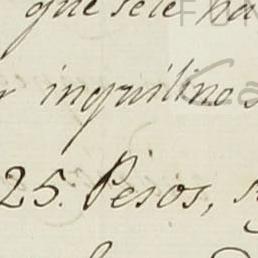 que se le ha
inquilinos
25. Pesos,